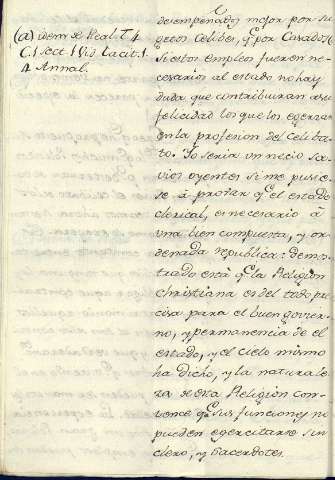 (a) idem de Real. T. 4
C. 1 sect. 1 Vid. Tacit. 1.
4 Annal.
desempeñados mejor por su
getos Celibes, qe. por Casados.
Si estos empleos fueren ne-
cesarios al estado no hay
duda que contribuiran a su
felicidad los que los egerzan
en la profesion del Celiba-
to. Yo seria un necio sa-
vios oyentes si me pusie-
se á probar qe. el estado
clerical, es necesario á
una bien compuesta, y or-
denada republica: demos
trado está qe. la Religion
christiana es del todo pre
cisa para el buen govier-
no, y permanencia de el
estado, y el cielo mismo
ha dicho, y la naturale
za de esta Religion con-
vence qe. sus funciones no
pueden egercitarse sin
clero, y sacerdotes.